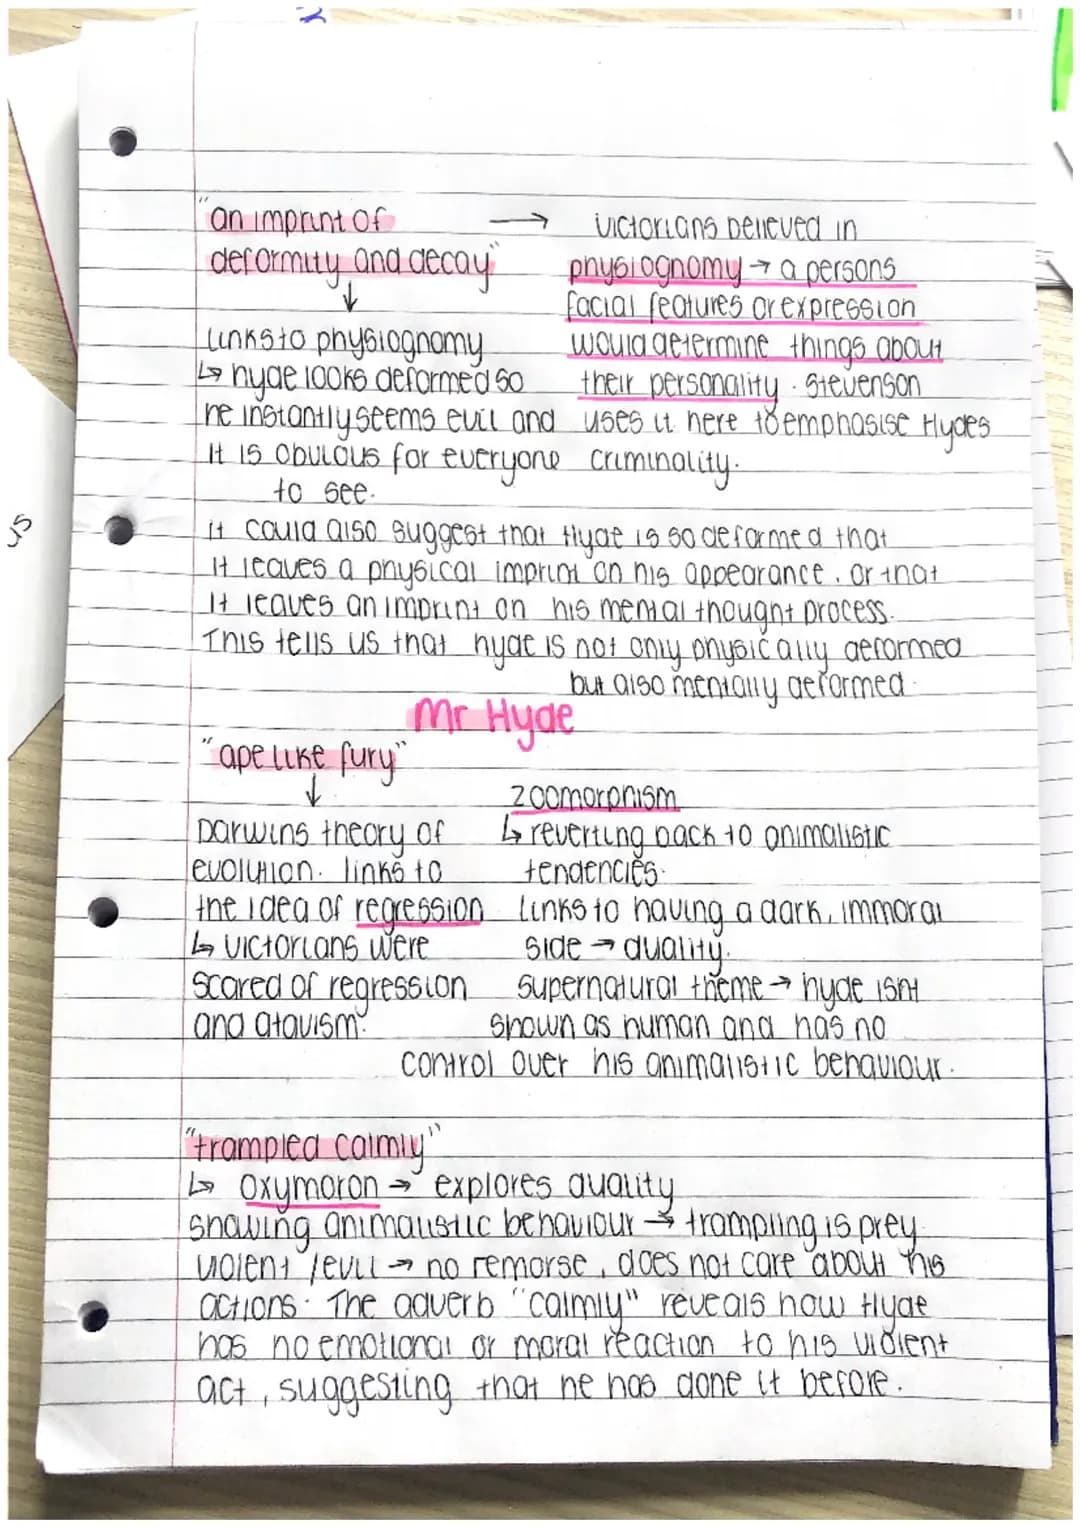 "an imprint of → Victorians believed in
deformity and decay" physiognomy → a persons
↓ facial features or expression
Links to physiognomy would determine things about
↳ hyde looks deformed so their personality. Stevenson
he instantly seems evil and uses it here to emphasise Hydes
It is obvious for everyone criminality.
to see.
it could also suggest that Hyde is so deformed that
it leaves a physical imprint on his appearance. or that
it leaves an imprint on his mental thought process.
This tells us that hyde is not only physically deformed
but also mentally deformed.
Mr Hyde
"ape like fury"
↓ zoomorphism
Darwins theory of ↳ reverting back to animalistic
evolution. links to tendencies.
the idea of regression Links to having a dark, immoral
↳ Victorians were side → duality.
scared of regression supernatural theme → hyde isnt
and atavism. shown as human and has no
control over his animalistic behaviour.
"trampled calmly"
↳ oxymoron → explores duality
showing animalistic behaviour → trampling is prey.
violent / evil → no remorse, does not care about his
actions. The adverb "calmly" reveals how Hyde
has no emotional or moral reaction to his violent
act, suggesting that he has done it before.